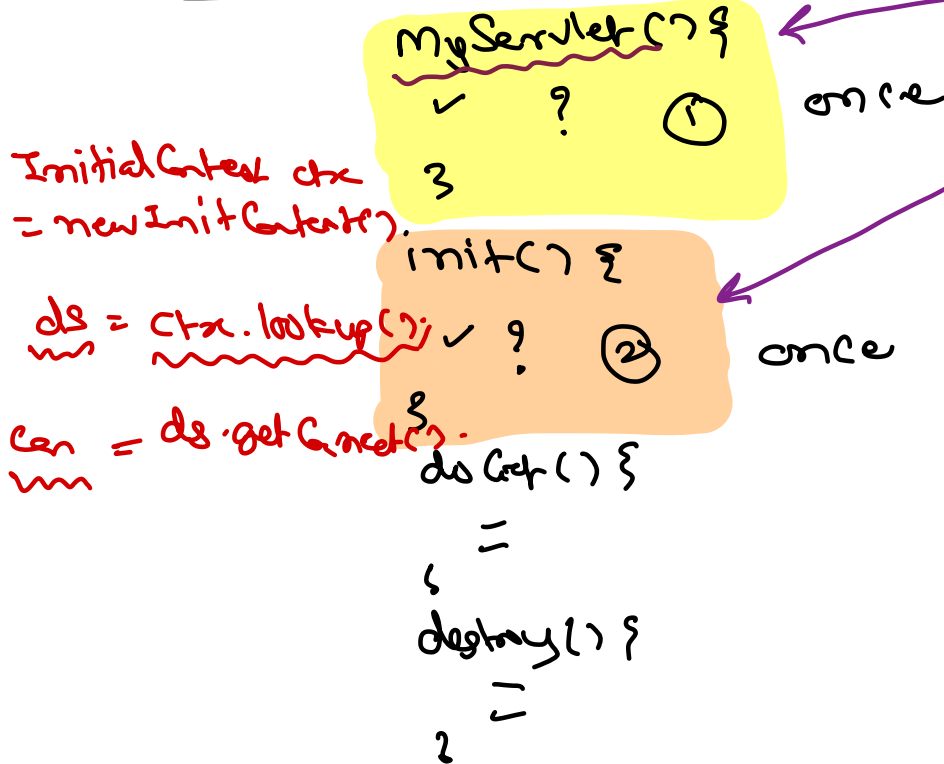 MyServlet() {
✓ ? ① once
}
InitialContext ctx
= new InitContext();
init() {
ds = ctx.lookup();
✓ ? ② once
}
con = ds.getConnect();
doGet() {
=
}
destroy() {
=
}